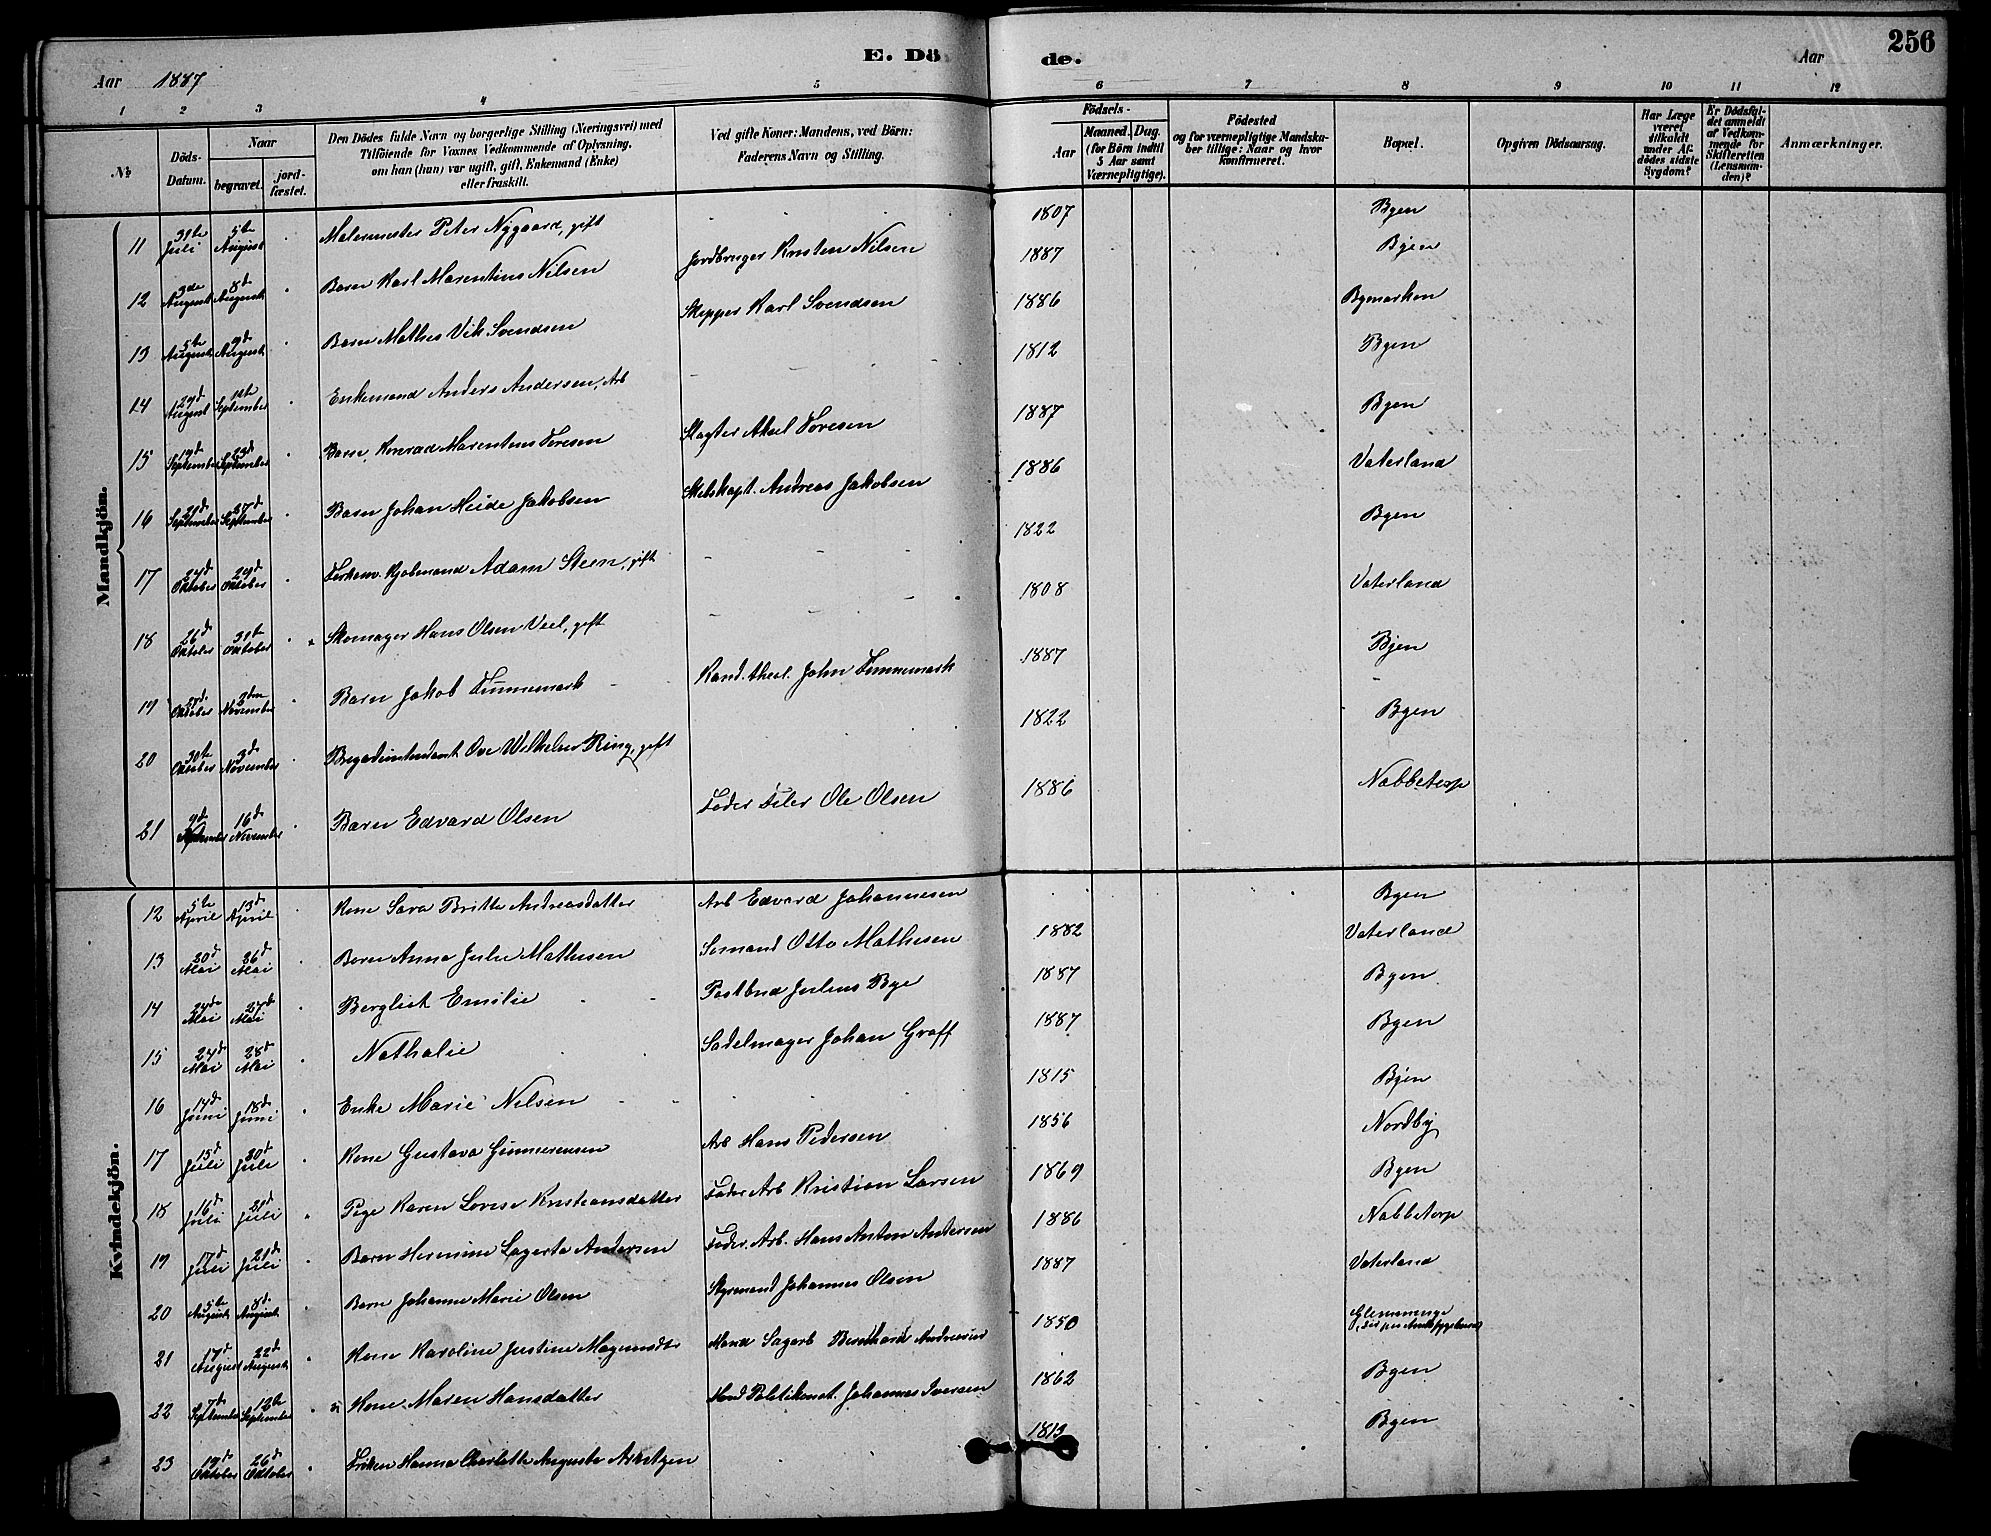 E. Döde.
256
Aar 1887
Aar
1 2 3 4 5 6 7 8 9 10 11 12
№
Döds-Datum.
Naar
begravet.
jordfæstet.
Den Dödes fulde Navn og borgerlige Stilling (Næringsvei) med Tilföiende for Voxnes Vedkommende af Oplysning, om han (hun) var ugift, gift, Enkemand (Enke) eller fraskilt.
Ved gifte Koner: Mandens, ved Börn: Faderens Navn og Stilling.
Födsels-
Aar
Maaned. Dag. (for Börn indtil 5 Aar samt Værnepligtige).
Födested og for værnepligtige Mandskaber tillige: Naar og hvor konfirmeret.
Bopæl.
Opgiven Dödsaarsag.
Har Læge været tilkaldt under Afdödes sidste Sygdom?
Er Dödsfaldet anmeldt af Vedkommende for Skifteretten (Lensmanden)?
Anmærkninger.
Mandkjön.
11 31te Juli 5te August Malermester Peter Nygaard, gift 1807 Byen
12 3de August 8de August Barn Karl Marentius Nilsen Jordbruger Kristen Nilsen 1887 Byen
13 5te August 9d August Barn Mathis Vik Svendsen Skipper Karl Svendsen 1886 Bymarken
14 29d August September Enkemand Anders Andersen, Arb 1812 Byen
15 19d September 23d September Barn Konrad Marentius Toresen Slagter Aksel Toresen 1887 Byen
16 21d September 27d September Barn Johan Heide Jakobsen Andreas Jakobsen 1886 Vaterland
17 24d Oktober 29d Oktober Adam Steen, gift 1822 Byen
18 26d Oktober 31te Oktober Skomager Hans Olsen Veel, gift 1808 Vaterland
19 Oktober November Barn Jakob Tinnemark Kand. theol. John Tinnemark 1887 Byen
20 30te Oktober 3d November Brigadeintendant Ove Wilhelm Ring, gift 1822 Byen
21 9d November 16d November Barn Edvard Olsen Fader Filer Ole Olsen 1886 Nabbetorp
Kvindekjön.
12 5te April 13d April Kone Sara Britte Andreasdatter Arb Edvard Johannesen Byen
13 20d Mai 26d Mai Barn Anna Julie Mathisen Sømand Otto Mathisen 1882 Vaterland
14 24de Mai 27d Mai Bergliot Emilie Postbud Julius Bye 1887 Byen
15 24d Mai 28d Mai Nathalie Sadelmager Johan Graff 1887 Byen
16 14d Juni 18d Juni Enke Marie Nilsen 1815 Byen
17 15d Juli 20d Juli Kone Gustava Gunnerensen Arb Hans Pedersen 1856 Nordby
18 16d Juli 21d Juli Pige Karen Lovise Kristiansdatter Fader Arb Kristian Larsen 1869 Byen
19 17d Juli 21d Juli Barn Hermine Lagerta Andersen Fader Arb. Hans Anton Andersen 1886 Nabbetorp
20 5te August 8d August Barn Johanne Marie Olsen Styrmand Johannes Olsen 1887 Vaterland
21 17d August 22d August Kone Karoline Justine Magnusdtr Mand Sagarb Bernhard Andersen 1850 Glemminge
22 7d September 12te September Kone Maren Hansdatter Mand Politikonst. Johannes Iversen 1862 Byen
23 19d Oktober 26d Oktober Frøken Hanna Charlotte Auguste 1813 Byen